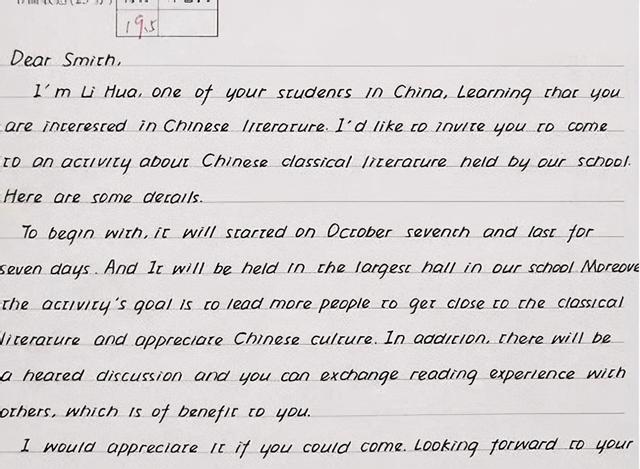 19.5
Dear Smith,
I'm Li Hua, one of your students in China, Learning that you
are interested in Chinese literature. I'd like to invite you to come
to an activity about Chinese classical literature held by our school.
Here are some details.
To begin with, it will started on October seventh and last for
seven days. And It will be held in the largest hall in our school Moreove
the activity's goal is to lead more people to get close to the classical
literature and appreciate Chinese culture. In addition, there will be
a heated discussion and you can exchange reading experience with
others, which is of benefit to you.
I would appreciate it if you could come. Looking forward to your